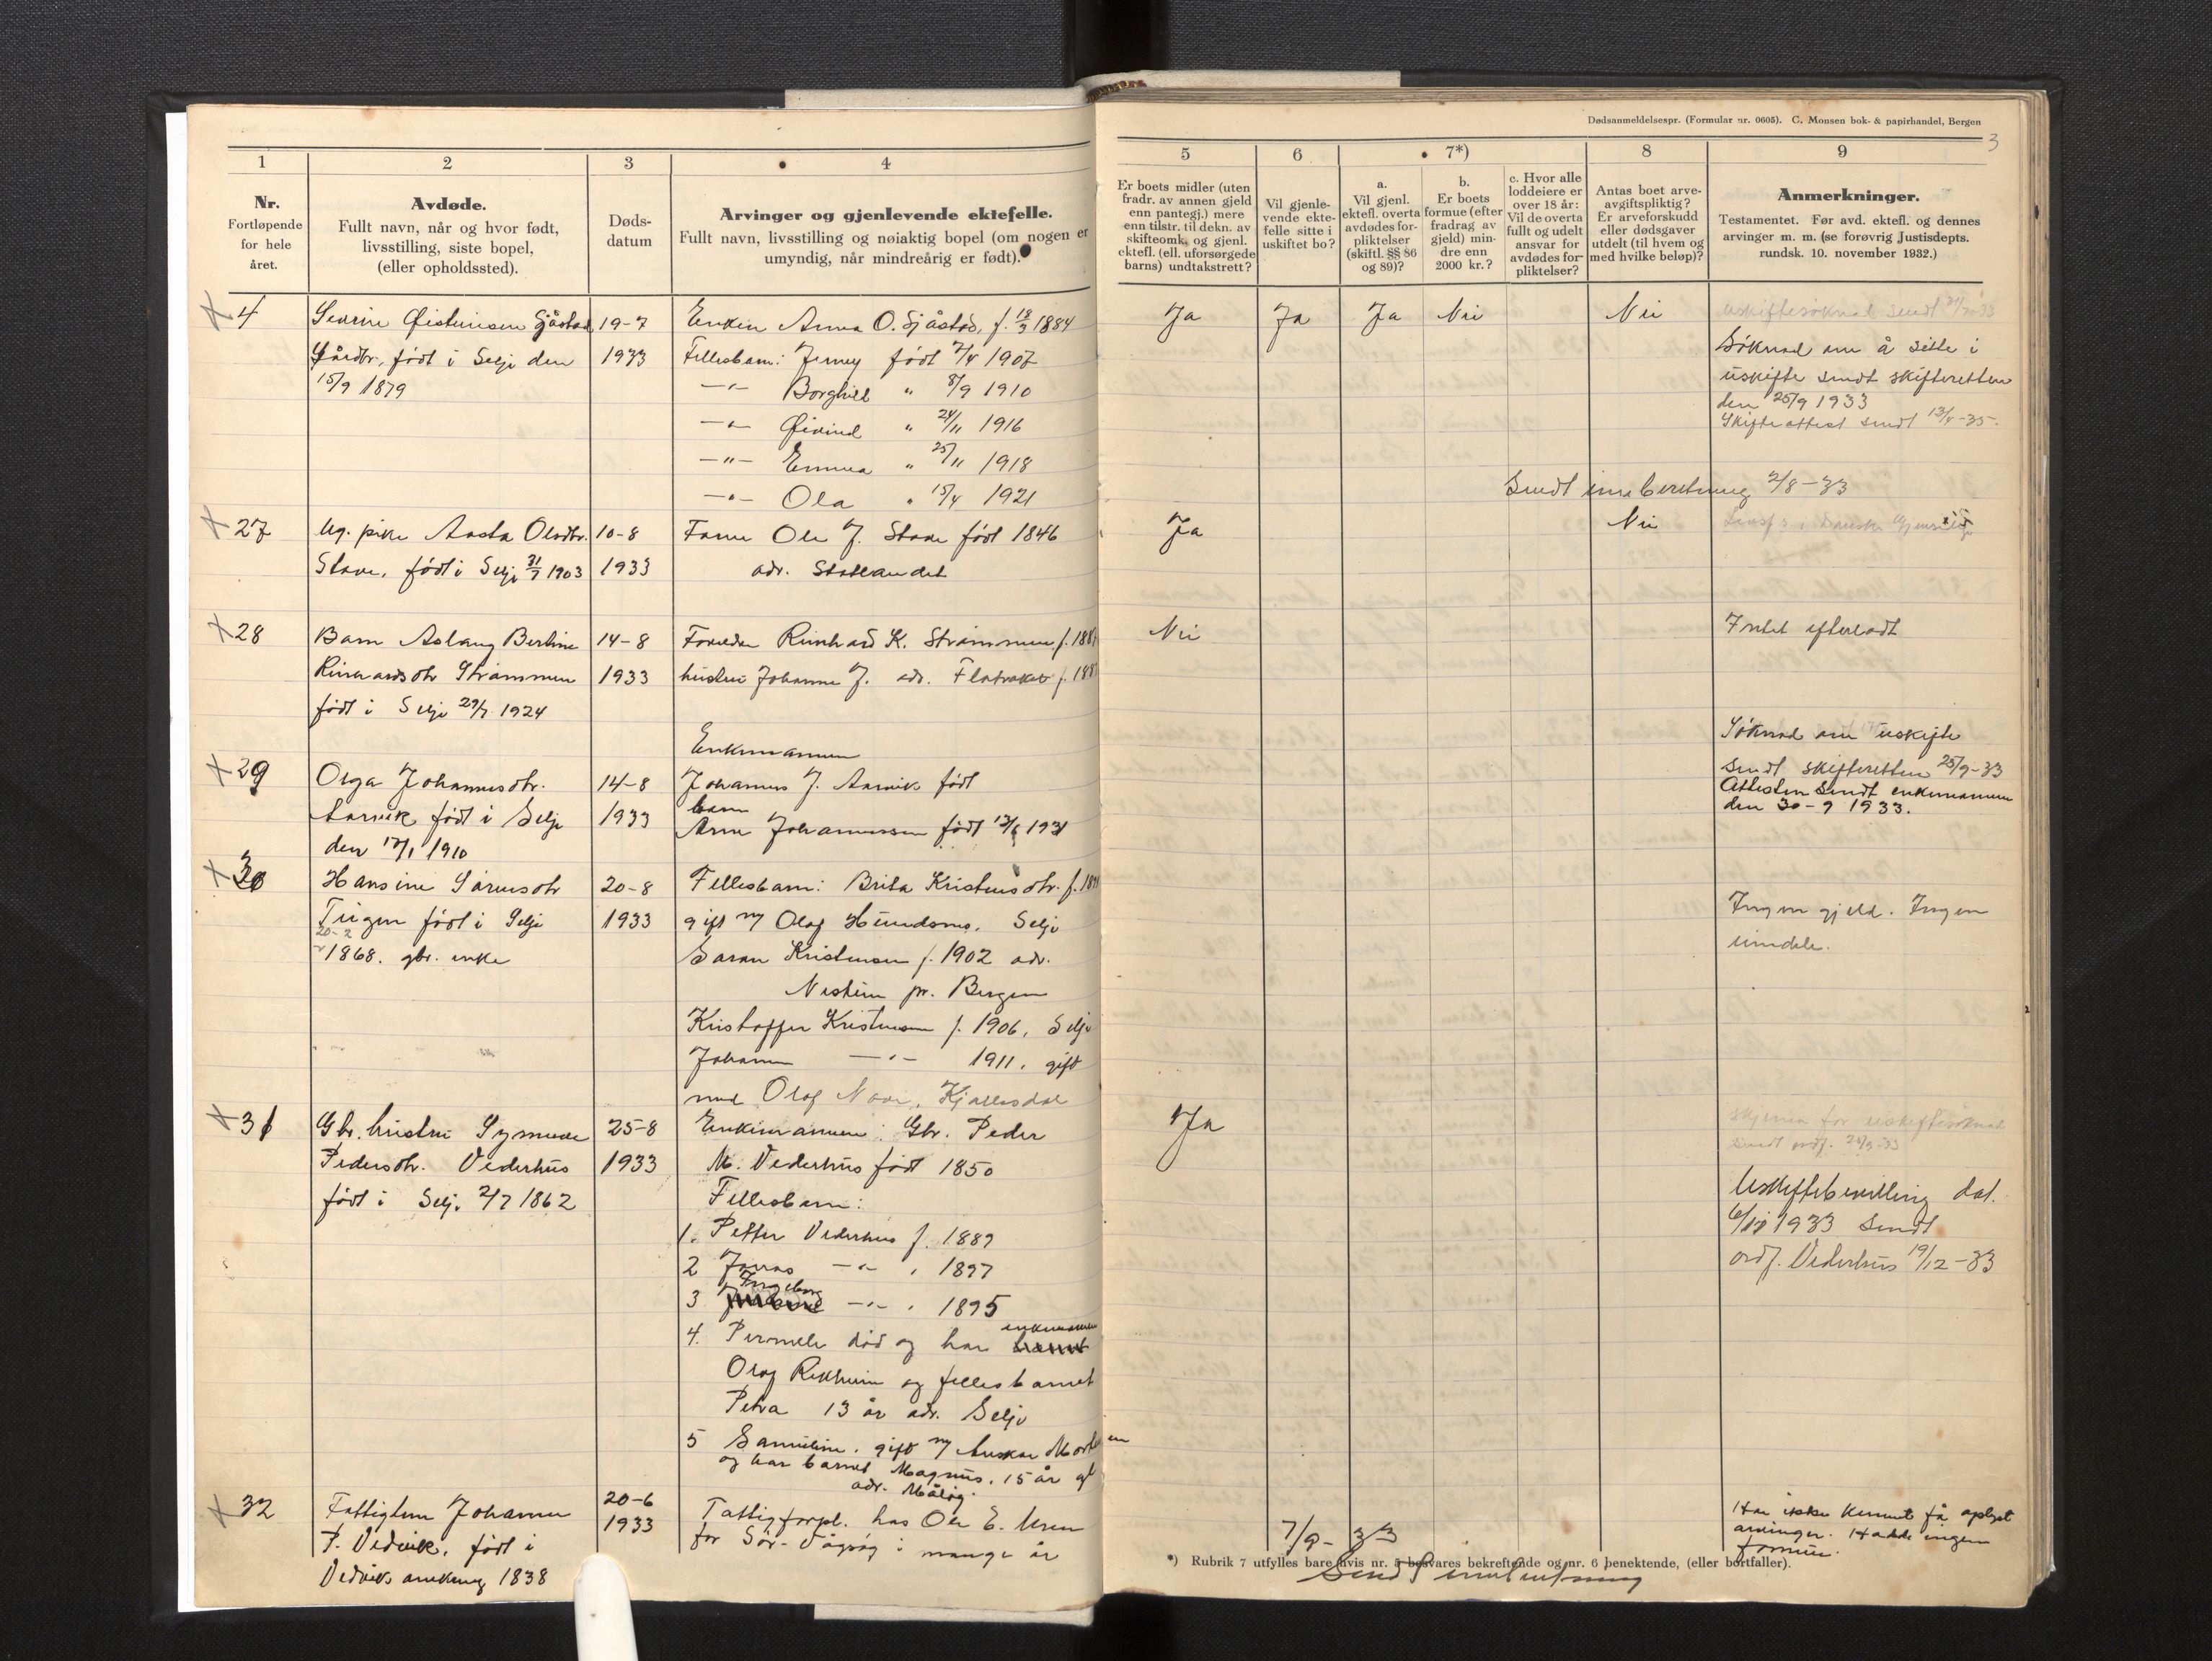 Dødsanmeldelsespr. (Formular nr. 0605). C. Monsen bok- & papirhandel, Bergen
3
1
2
3
4
5
6
7*)
8
9
Nr.
Fortløpende
for hele
året.
Avdøde.
Fullt navn, når og hvor født,
livsstilling, siste bopel,
(eller opholdssted).
Døds-
datum
Arvinger og gjenlevende ektefelle.
Fullt navn, livsstilling og nøiaktig bopel (om nogen er
umyndig, når mindreårig er født).
Er boets midler (uten
fradr. av annen gjeld
enn pantegj.) mere
enn tilstr. til dekn. av
skifteomk. og gjenl.
ektefl. (ell. uforsørgede
barns) undtakstrett?
Vil gjenle-
vende ekte-
felle sitte i
uskiftet bo?
a.
Vil gjenl.
ektefl. overta
avdødes for-
pliktelser
(skiftl. §§ 86
og 89)?
b.
Er boets
formue (efter
fradrag av
gjeld) min-
dre enn
2000 kr.?
c. Hvor alle
loddeiere er
over 18 år:
Vil de overta
fullt og udelt
ansvar for
avdødes for-
pliktelser?
Antas boet arve-
avgiftspliktig?
Er arveforskudd
eller dødsgaver
utdelt (til hvem og
med hvilke beløp)?
Anmerkninger.
Testamentet. Før avd. ektefl. og dennes
arvinger m. m. (se forøvrig Justisdepts.
rundsk. 10. november 1932.)
4
Sjåstad 19-7
født i Selje den 1933
15/9 1879
Enken Anna O. Sjåstad, f. 18/3 1884
Fellesbarn: Jenny født 7/4 1907
-"- Borghild " 8/9 1910
-"- Øivind " 24/11 1916
-"- Emma " 25/11 1918
-"- Ola " 15/4 1921
Ja Ja Ja Nei Nei
uskiftesøknad sendt
Søknad om å sitte i
uskifte sendt skifteretten
den 25/9 1933
Skifteattest sendt 13/8-35.
Sendt innberetning 2/8-33
27
Ug. pike Aasta Olsdtr. 10-8
Stave, født i Selje 31/7 1903 1933
Faren Ole J. Stave født 1846
adr. Statlandet
Ja Nei
28
Barn Aslaug Bertine 14-8
Strømmen 1933
født i Selje 29/7 1924
Foreldre Reinhard K. Strømmen f.
hustru Johanne J. adr. Flatraket f.
Nei
Intet efterladt
29
Olga Johannesdtr. 14-8
Aarvik født i Selje 1933
den 17/1 1910
Enkemannen
Johannes J. Aarvik født
barn
Arne Johannessen født 1931
Søknad om uskifte
sendt skifteretten 25/9-33
Attesten sendt enkemannen
den 30-9 1933.
30
Hansine Sørensdtr 20-8
født i Selje 1933
20-2
1868. gbr. enke
Fellesbarn: Brita Kristensdtr. f.
gift m/ Olaf Hundsnes, Selje
Søren Kristensen f. 1902 adr.
Nesttun pr. Bergen
Kristoffer Kristensen f. 1906, Selje
Johanne -"- 1911, gift
med Olaf Nave, Kjøllesdal
Ingen gjeld. Ingen
31
Gbr. hustru Synneve 25-8
Pedersdtr. Vederhus 1933
født i Selje 2/7 1862
Enkemannen: Gbr. Peder
M. Vederhus født 1850
Fellesbarn:
1. Petter Vederhus f. 1889
2 Jonas -"- " 1897
Ingeborg
3 -"- " 1895
enkemannen
4. Pernelle død og har
Olaf Rekheim og fellesbarnet
Petra 13 år adr. Selje
5 Samuline, gift m/
og har barnet Magnus, 15 år gl
adr. Måløy.
Ja
skjema for uskiftesøknad
sendt
Uskiftebevilling dat.
1933 sendt
ordf. Vederhus 19/12-33
32
Fattiglem Johanne 20-6
P. Vedvik, født i 1933
Vedvik omkring 1838
Fattigforpl. hos Ole E. Uren
for Sør-Vågsøy i mange år
Har ikke kunnet få oplyst
arvinger. Hadde ingen
formue.
7/9-33
Sendt innberetning
*) Rubrik 7 utfylles bare hvis nr. 5 besvares bekreftende og nr. 6 benektende, (eller bortfaller).